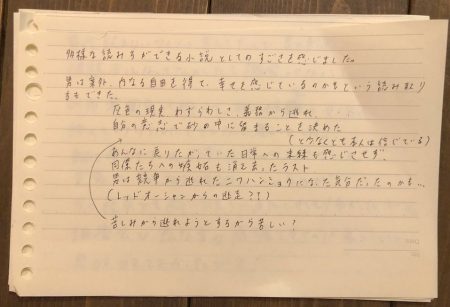 多様な読み方ができる小説としてのすごさを感じました。
男は案外、内なる自由を得て、幸せを感じているのかもという読み取り
もできた。
灰色の現実、わずらわしさ、義務から逃れ
自分の意志で砂の中に留まることを決めた
(と少なくとも本人は信じている)
あんなに戻りたがっていた日常への未練も感じさせず
同僚たちへの嫉妬も消え去ったラスト
男は競争から逃れたニワハンミョウになった気分だったのかも…
(レッドオーシャンからの逃走??)
苦しみから逃れようとするから苦しい?